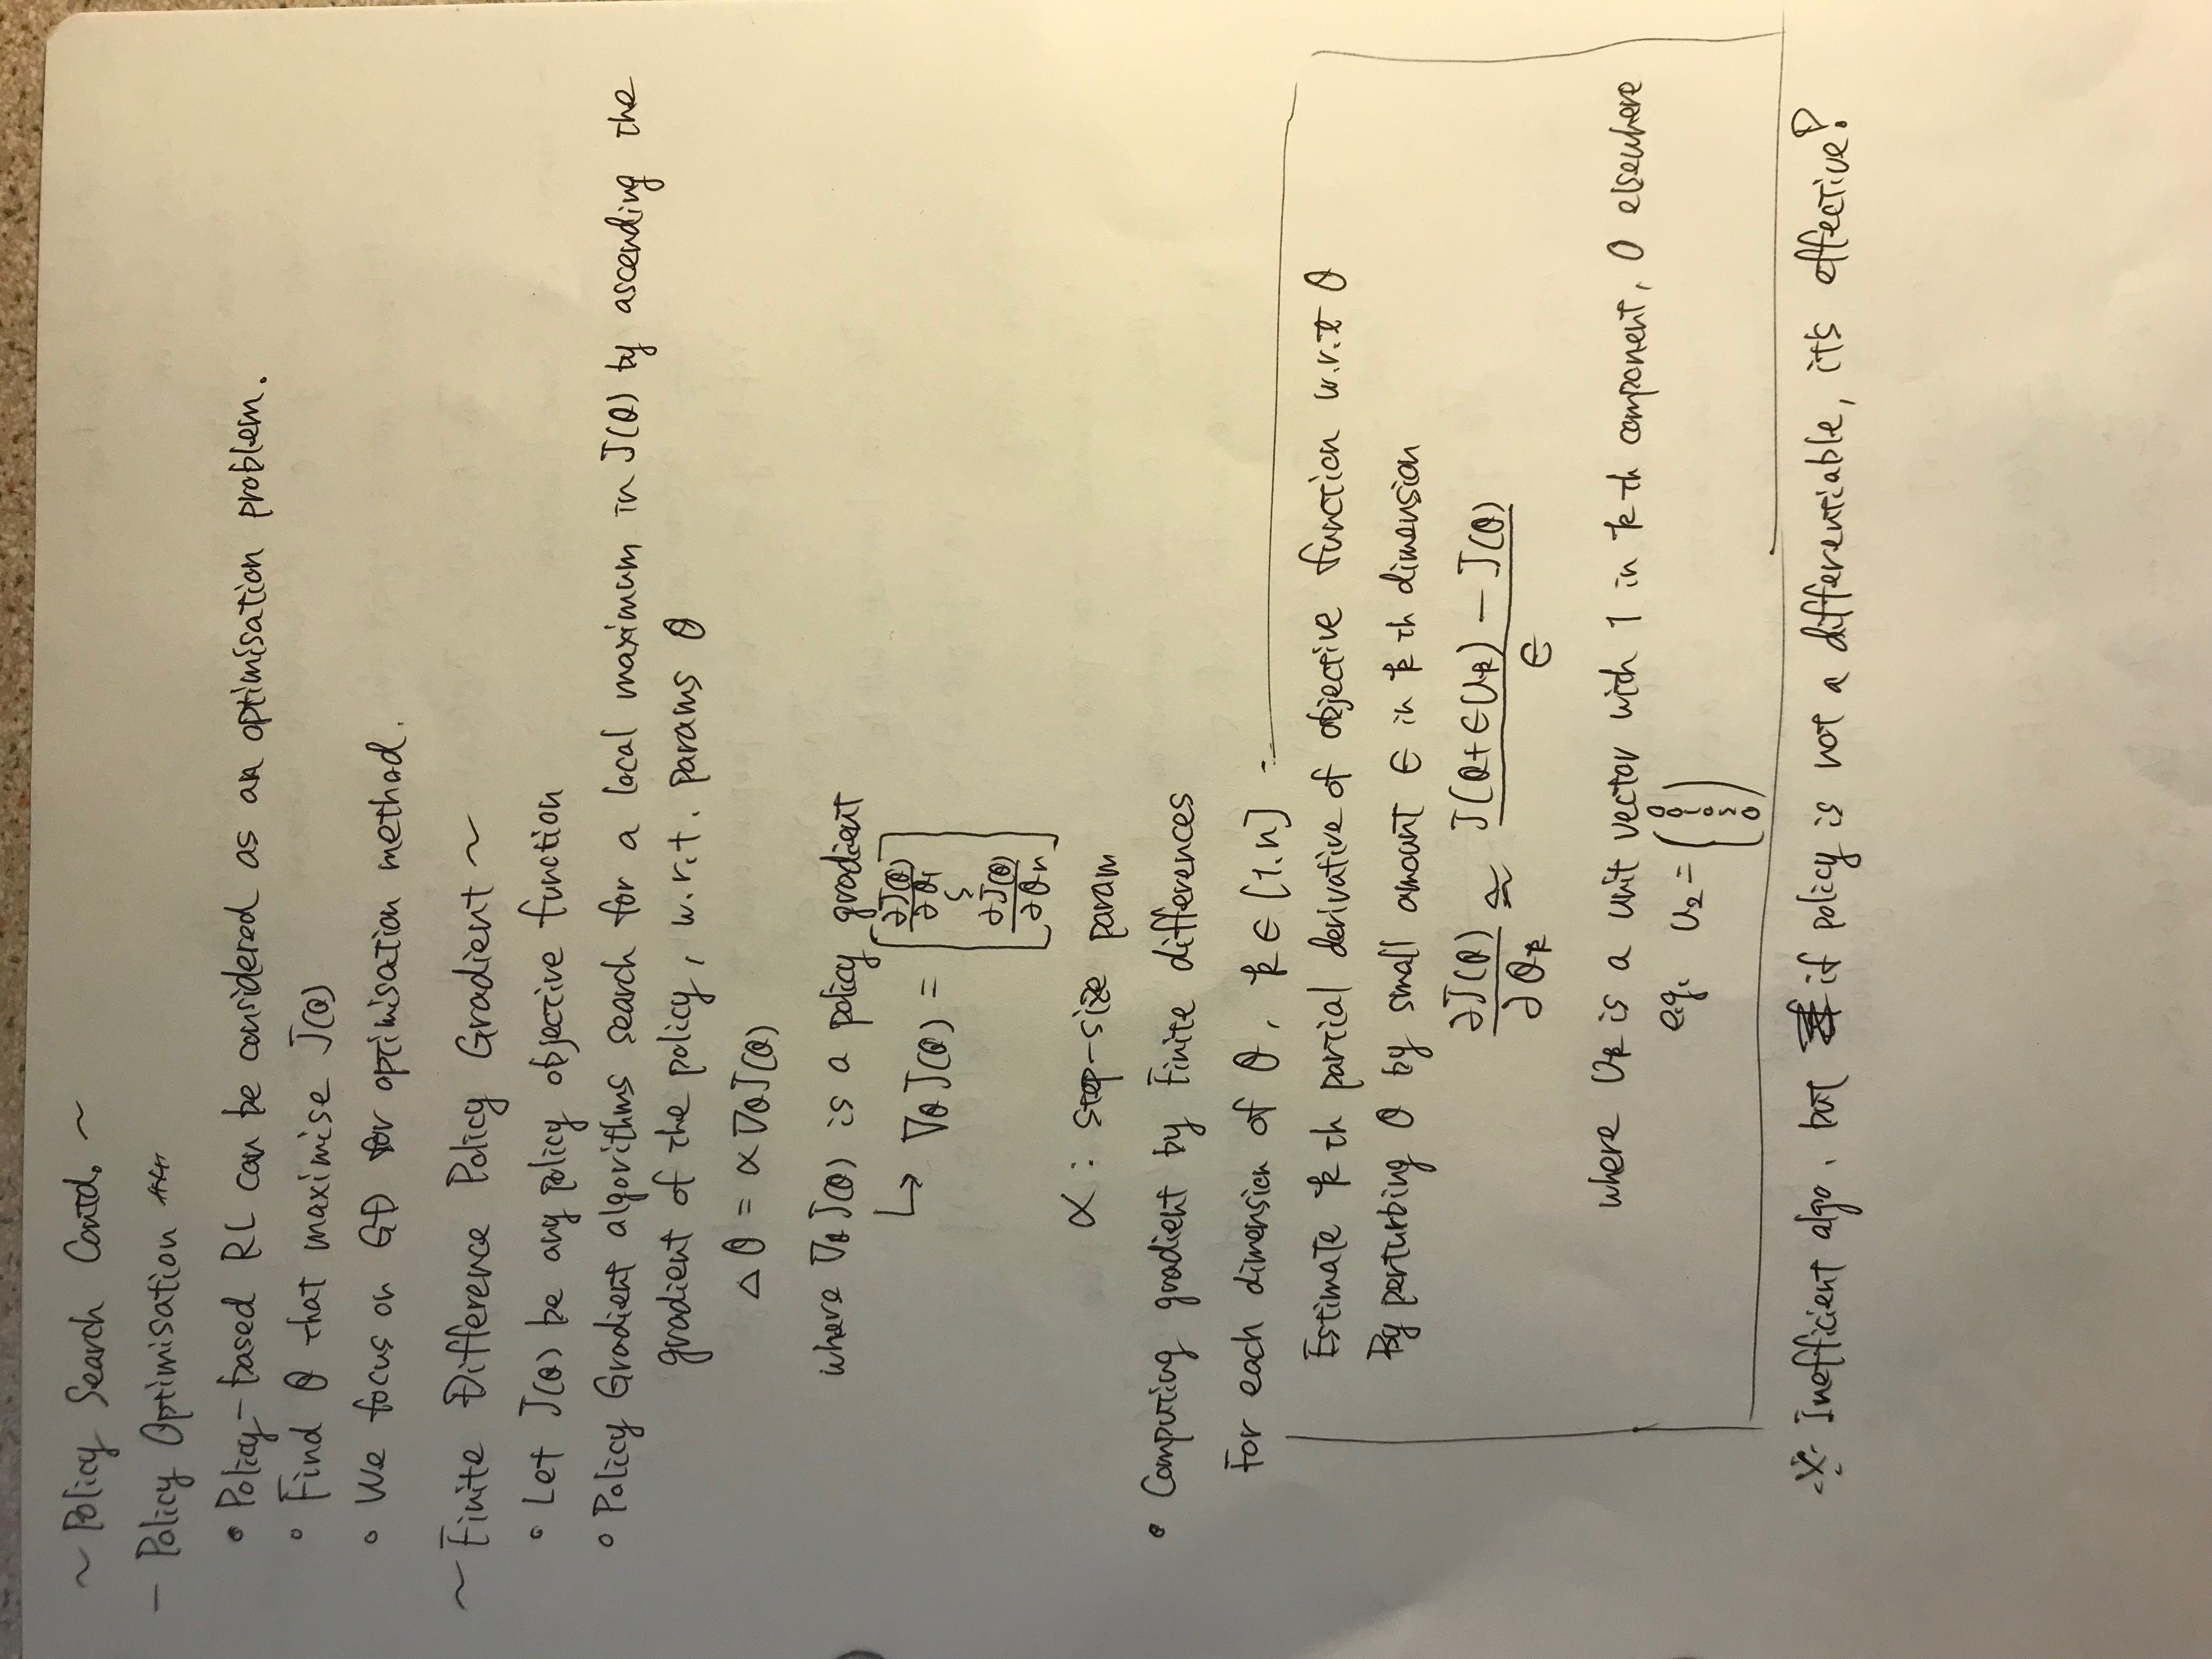 ~ Policy Search Contd. ~
- Policy Optimisation
• Policy-based RL can be considered as an optimisation problem.
• Find θ that maximise J(θ)
• We focus on GD for optimisation method.
~ Finite Difference Policy Gradient ~
• Let J(θ) be any policy objective function
• Policy Gradient algorithms search for a local maximum in J(θ) by ascending the
gradient of the policy, w.r.t. params θ
△θ = α∇θJ(θ)
where ∇θJ(θ) is a policy gradient
↳ ∇θJ(θ) = [∂J(θ)/∂θ1 ⋮ ∂J(θ)/∂θn]
α : step-size param
• Computing gradient by Finite differences
For each dimension of θ, k ∈ [1.n]
Estimate k th partial derivative of objective function w.r.t θ
By perturbing θ by small amount ϵ in k th dimension
∂J(θ)/∂θk ≃ (J(θ+ϵUk) - J(θ))/ϵ
where Uk is a unit vector with 1 in k th component, 0 elsewhere
e.g. U2 = (0 0 1 0 ⋮ 0)
※ Inefficient algo, but if policy is not a differentiable, it's effective?